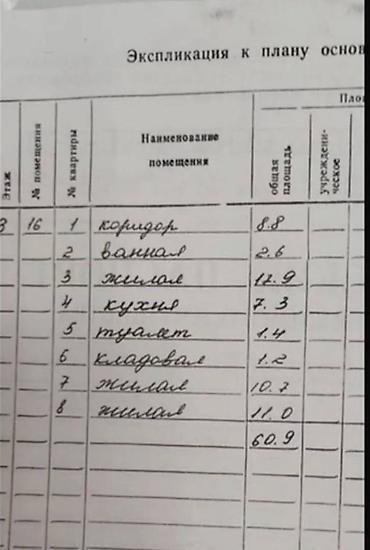 Экспликация к плану основ
Этаж
№ помещения
№ квартиры
Наименование
помещения
Площ
общая
площадь
учреждени-
ческое
3 16 1 коридор 8.8
2 ванная 2.6
3 жилая 17.9
4 кухня 7.3
5 туалет 1.4
6 кладовая 1.2
7 жилая 10.7
8 жилая 11.0
60.9